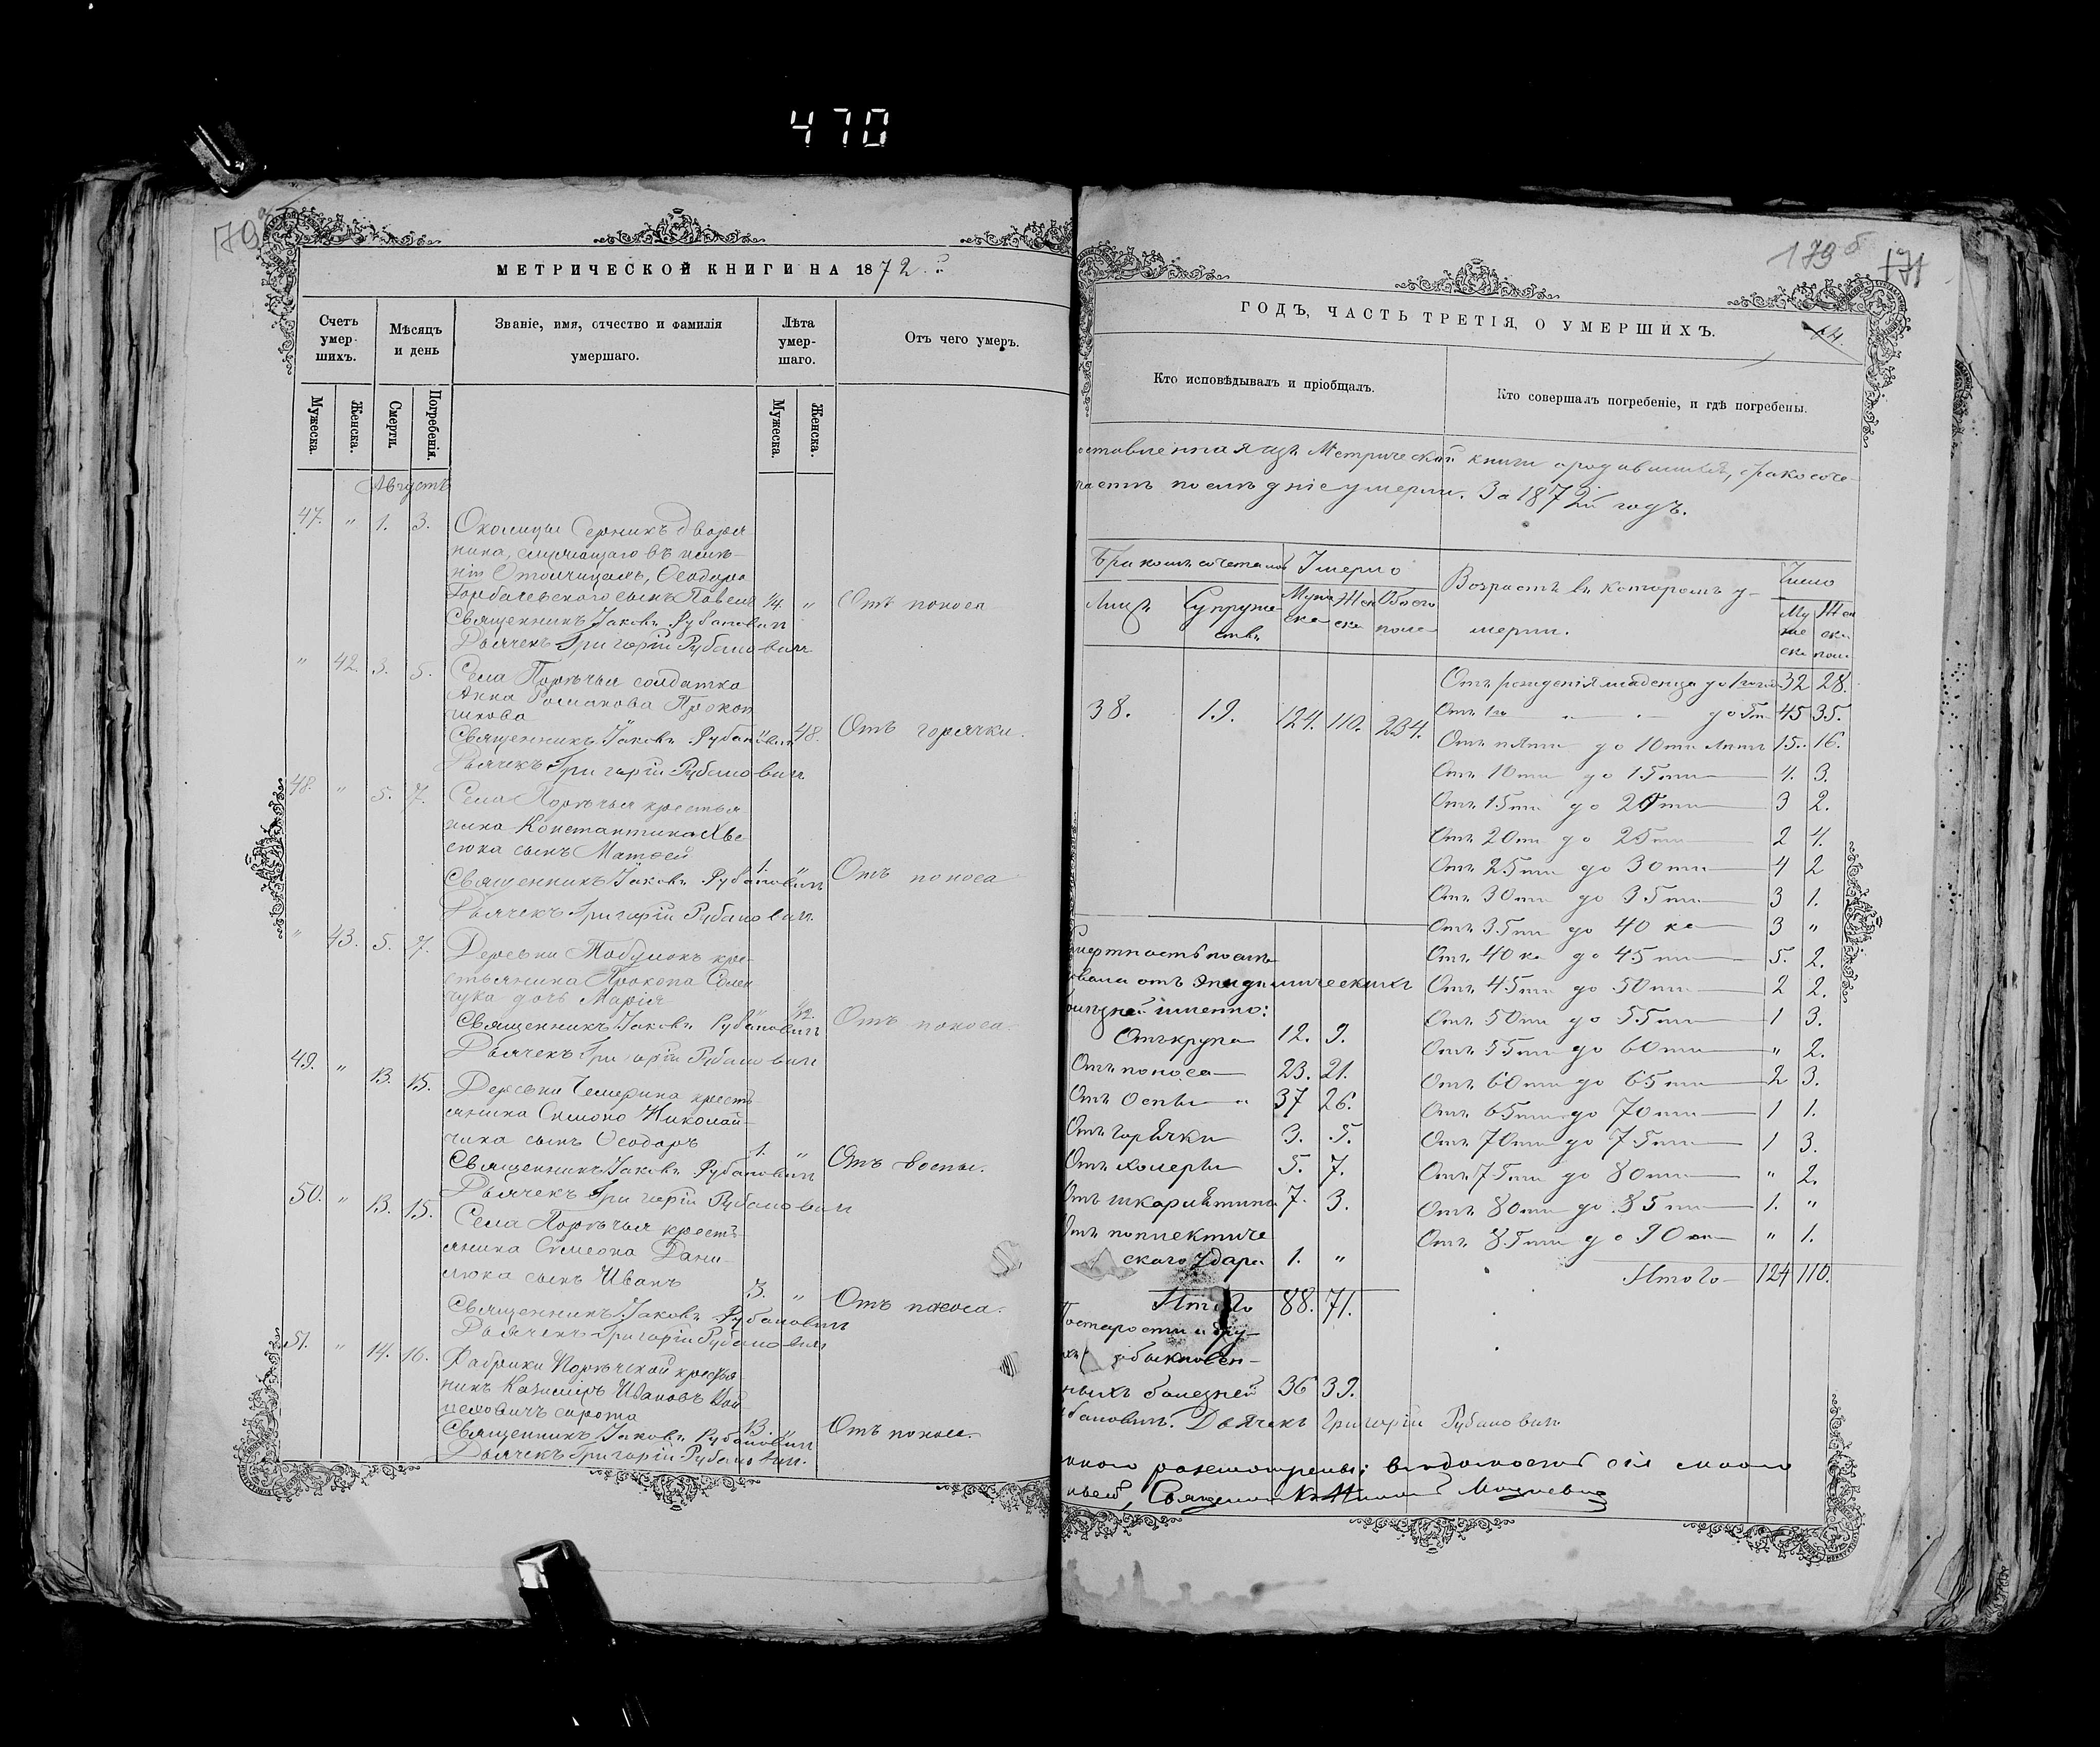 470
179 об
МЕТРИЧЕСКОЙ КНИГИ НА 1872 й
Счетъ умер-шихъ.
Мѣсяцъ и день
Званіе, имя, отчество и фамилія умершаго.
Лѣта умер-шаго.
Отъ чего умеръ.
Мужеска.
Женска.
Смерти.
Погребенія.
Мужеска.
Женска.
Августъ
47. " 1. 3. Околицы Серникъ дворя
нина, служащаго въ имѣ-
ніи Ѳеодора
Горбачевскаго сынъ Павелъ 1/4 " Отъ поноса
Священникъ Іаковъ Рубановичъ
Дьячекъ Григорій Рубановичъ
" 42. 3. 5. Села Порѣчья солдатка
Анна Романова Прокоп
чукова
Священникъ Іаковъ Рубановичъ " 48. Отъ горячки.
Дьячекъ Григорій Рубановичъ
48. " 5. 7. Села Порѣчья крестья
нина Константина Хве
сюка сынъ Матѳей
Священникъ Іаковъ Рубановичъ 1. " Отъ поноса
Дьячекъ Григорій Рубановичъ.
" 43. 5. 7. Деревни Тобулокъ кре-
стьянина Прокопа Семен
чука дочь Марія
Священникъ Іаковъ Рубановичъ " 1/2. Отъ поноса.
Дьячекъ Григорій Рубановичъ
49. " 13. 15. Деревни Чемерина кресть
янина Симона Николай-
чика сынъ Ѳеодоръ
Священникъ Іаковъ Рубановичъ 1. " Отъ воспы.
Дьячекъ Григорій Рубановичъ
50. " 13. 15. Села Порѣчья кресть
янина Симеона Дани-
люка сынъ Иванъ
3. " Отъ поноса.
Священникъ Іаковъ Рубановичъ
Дьячекъ Григорій Рубановичъ
51. " 14. 16. Фабрики Порѣчской крестья
нинъ Казиміръ Ивановъ Вой
цеховичъ сирота
Священникъ Іаковъ Рубановичъ 13. " Отъ поноса.
Дьячекъ Григорій Рубановичъ.
179 б 171
ГОДЪ, ЧАСТЬ ТРЕТІЯ, О УМЕРШИХЪ.
64.
Кто исповѣдывалъ и пріобщалъ.
Кто совершалъ погребеніе, и гдѣ погребены.
оставленная изъ Метрической книги о родившихся, бракосоче-
умерши. За 1872й годъ.
Бракомъ сочеталось
Умерло
Возрастъ въ которомъ у-
мерли.
Число
Лицъ
Супруже-
ствъ
Муже
ска
Жен
ска
Обоего
пола
Му
же
ска
Жен
ска
пола
38. 19. 124. 110. 234.
Отъ рожденія младенца до 1 года 32 28.
Отъ 1го " " до 5ти 45 35.
Отъ пяти до 10ти лѣтъ 15. 16.
Отъ 10ти до 15ти 4. 3.
Отъ 15ти до 20ти 3 2.
Отъ 20ти до 25ти 2 4.
Отъ 25ти до 30ти 4 2
Отъ 30ти до 35ти 3 1.
Отъ 35ти до 40ка 3 "
Отъ 40ка до 45ти 5. 2.
Отъ 45ти до 50ти 2 2.
Отъ 50ти до 55ти 1 3.
Отъ 55ти до 60ти " 2.
Отъ 60ти до 65ти 2 3.
Отъ 65ти до 70ти 1 1.
Отъ 70ти до 75ти 1 3.
Отъ 75ти до 80ти " 2.
Отъ 80ти до 85ти 1. "
Отъ 85ти до 90та " 1.
Итого 124 110.
Смертность послѣ-
довала отъ эпидемическихъ
болѣзней именно:
Отъ крупа 12. 9.
Отъ поноса 23. 21.
Отъ Оспы 37 26.
Отъ горячки 3. 5.
Отъ холеры 5. 7.
Отъ шкарлятины 7. 3.
Отъ поплектиче
скаго Удара 1. "
Итого 88. 71.
По старости и дру-
обыкновен-
ныхъ болезней 36 39.
убановичъ. Дьячекъ Григорій Рубановичъ
вѣдомость сія
Священникъ